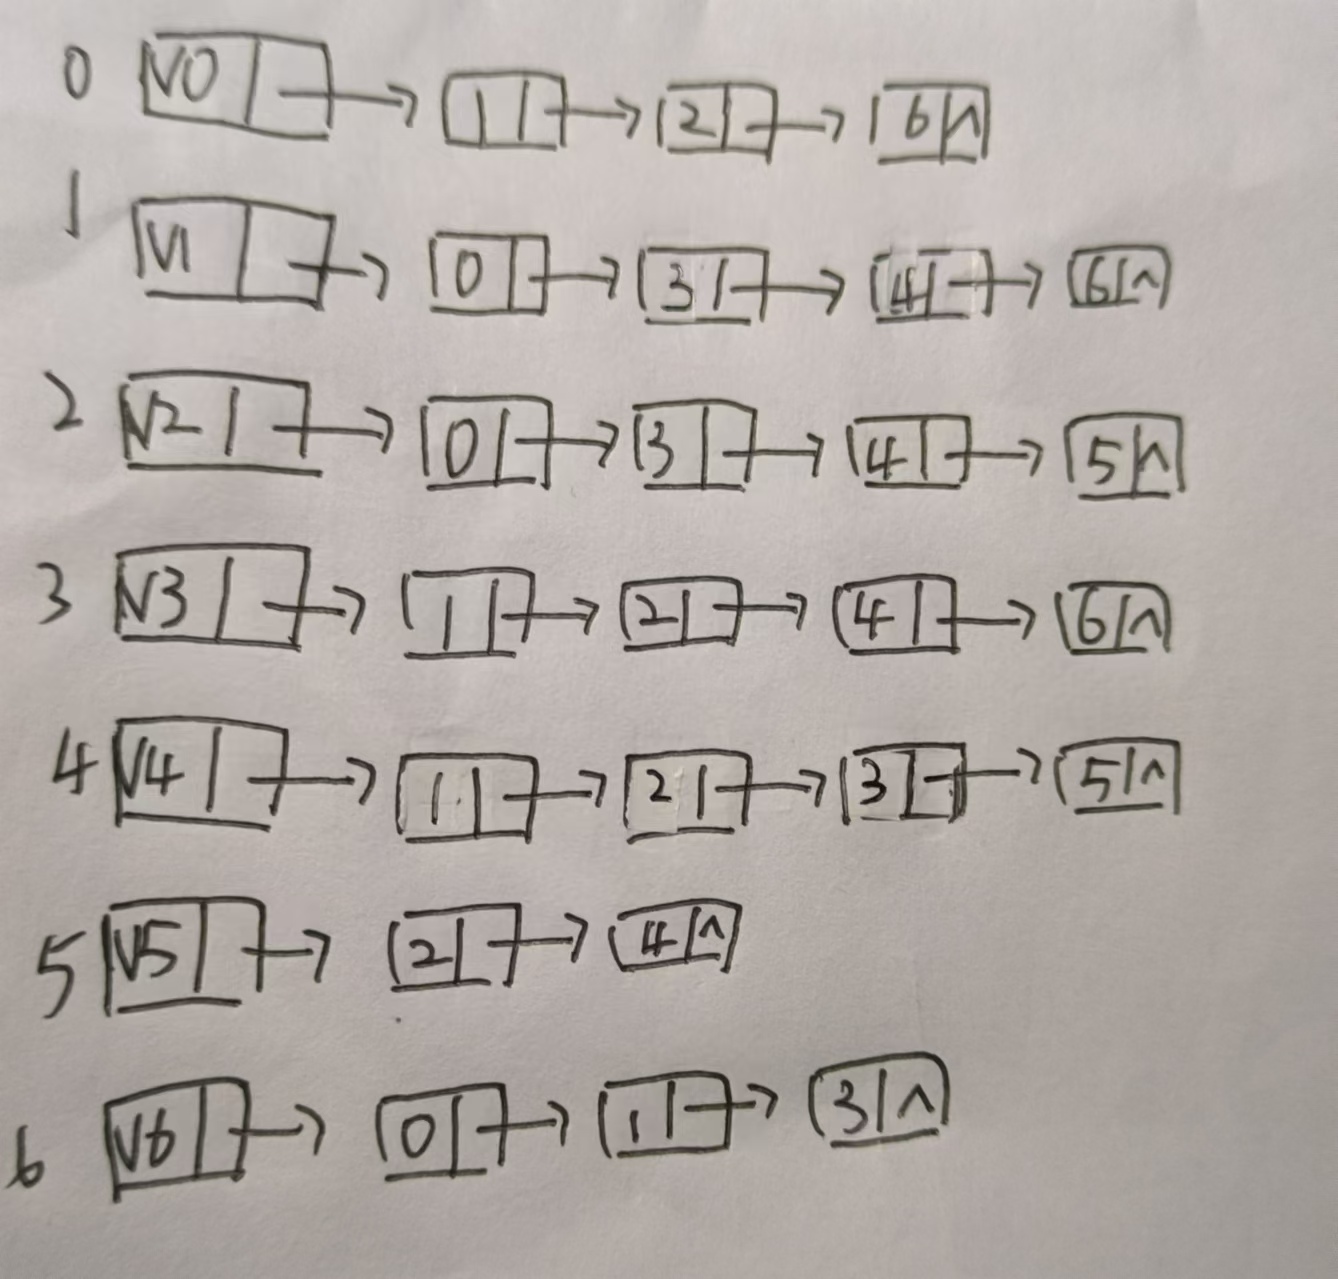 0 V0 → 1 → 2 → 6 ^
1 V1 → 0 → 3 → 4 → 6 ^
2 V2 → 0 → 3 → 4 → 5 ^
3 V3 → 1 → 2 → 4 → 6 ^
4 V4 → 1 → 2 → 3 → 5 ^
5 V5 → 2 → 4 ^
6 V6 → 0 → 1 → 3 ^